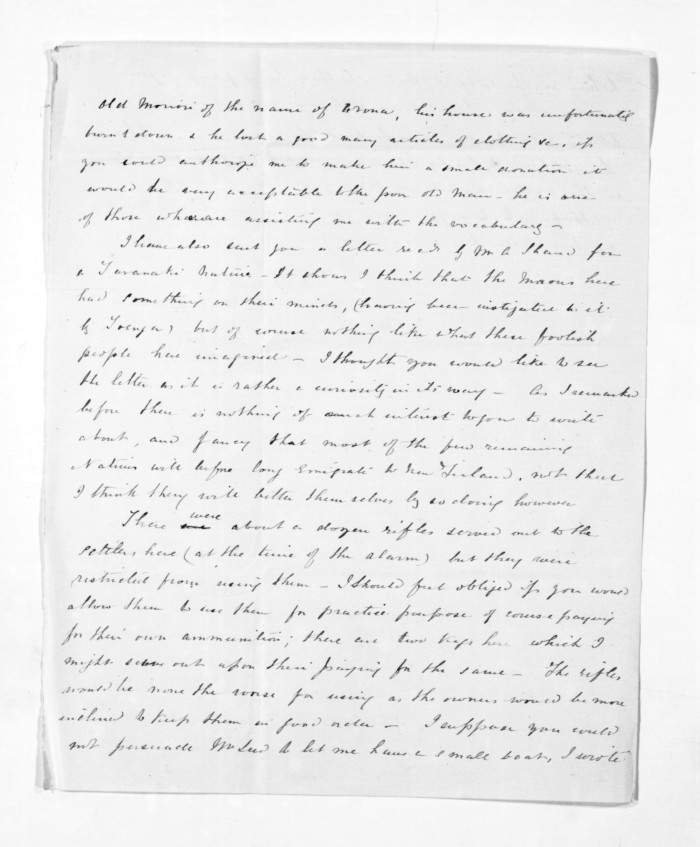 old Moriori of the name of Erona, his house was unfortunately
burnt down & he lost a good many articles of clothing &c, if
you could authorize me to make him a small donation it
would be very acceptable to the poor old man - he is one
of those who are assisting me with the vocabulary -
I have also sent you a letter recd by Mr A Shand from
a Taranaki Native - It shows I think that the Maoris here
had something on their minds, (having been instigated to it
by) but of course nothing like what these foolish
people have imagined - I thought you would like to see
the letter as it is rather a curiosity in its way - As I remarked
before there is nothing of much interest to you to write
about, and fancy that most of the few remaining
Natives will before long Emigrate to New Zealand, not that
I think they will better themselves by so doing however
There were about a dozen rifles served out to the
settlers here (at the time of the alarm) but they were
restricted from using them - I should feel obliged if you would
allow them to use them for practice purpose of course paying
for their own ammunition; there are two kegs here which I
might serve out upon their paying for the same - The rifles
would be none the worse for using as the owners would be more
inclined to keep them in good order - I suppose you could
not persuade Mr to let me have a small boat, I wrote